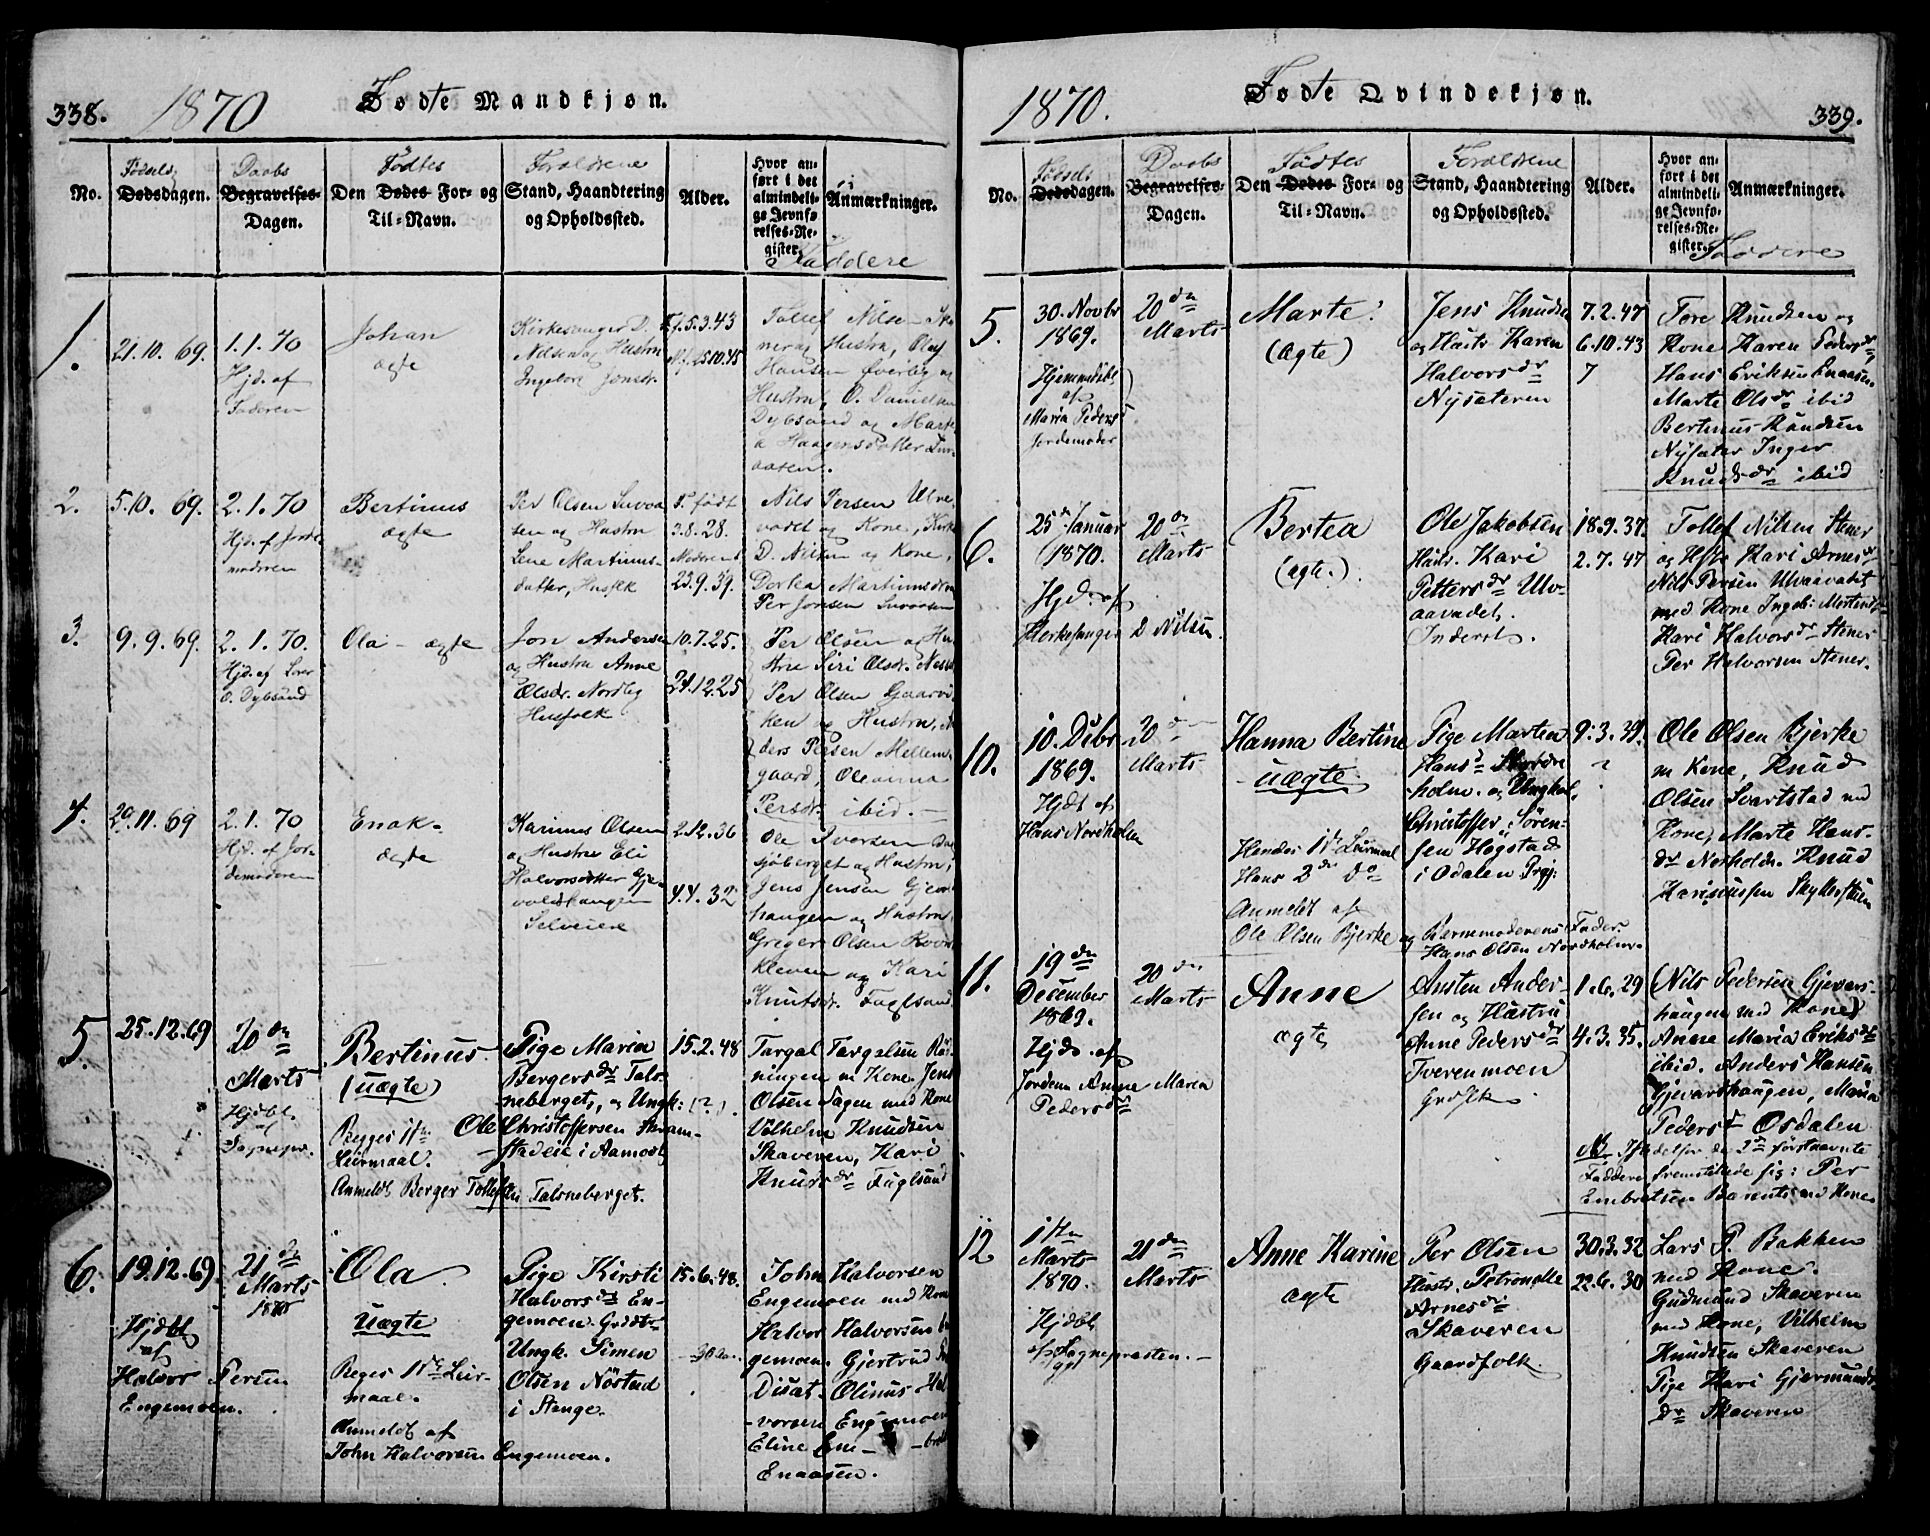 338.
1870
Fødte Mandkjøn.
No.
Fødsels
Dødsdagen.
Daabs
Begravelses-
Dagen.
Fødtes
Den Dødes For- og
Til-Navn.
Forældrene
Stand, Haandtering
og Opholdssted.
Alder.
Hvor an-
ført i det
almindeli-
ge Jevnfø-
relses-Re-
gister.
Anmærkninger.
Faddere
1.
21.10. 69.
1.1.70
Hjd. af
Faderen
Johan
ægte
Kirkesanger D.
Nilsen og Hustru
Ingebor Jonsdr.
F. f. 5.3.43
M. f. 25.10.45
Tollef Nilsen
og Hustru, Olaf
Hansen Øverlig og
Hustru, O. Danielsen
Dybsand og Marte
Haagensdatter
aasen.
2.
5.10. 69.
2.1.70
Hjd. af Jorde
moderen
Bertinus
ægte
Per Olsen
sen og Hustru
Lene Martinus-
datter, Husfolk
F. født
3.8.28.
Moderen
23.9.39.
Nils Persen Ulve
vadet og Kone, Kirkes
D. Nilsen og Kone,
Dortea Martinusdtr
Per Jonsen
3.
9.9.69.
2.1.70.
Hjd. af
O. Dybsand
Ola - ægte
Jon Andersen
og Hustru Anne
Olsdr. Nordlig
Husfolk
10.7.25.
24.12.25
Per Olsen og Hu-
stru Siri Olsdr.
Per Olsen Gaarvi
ken og Hustru, An
ders Persen Mellem-
gaard, Oleanna
Persdr. ibid. -
4.
29.11.69
2.1.70
Hjd. af Jor-
demoderen
Enok -
ægte
Karinus Olsen
og Hustru Eli
Halvorsdatter Gje-
voldshaugen
Selveiere
2.12.36
4.4.32
Ole Iversen
sjøberget og Hustru,
Jens Jensen Gjevor
haugen og Hustru,
Greger Olsen
kleven og Kari
Knutsdr. Fuglsand
5
25.12.69
20 de
Marts
Hjdbt.
af
Sognepr.
Bertinus
(uægte)
Begges 1ste
Leirmaal.
Anmeldt Berger Tollefsen Talsneberget.
Pige Maria
Bergersdr Tals-
neberget, og Ungk:
Ole Christoffersen
stadeie i Aamodt
15.2.48
(?).
Torgal Torgalsen Røs-
ningen m Kone. Jens
Olsen Sagen med Kone
Vilhelm Knudsen
Skaveren, Kari
Knudsdr Fuglsand
6.
19.12.69.
Hjdbt
af
Halvor Persen
Engemoen.
21 de
Marts
1870
Ola
Uægte
Beges 1ste Leir-
maal.
Anmeldt af
John Halvorsen Engemoen.
Pige Kirsti
Halvorsdr En-
gemoen. Grdbr
Ungk. Simen
Olsen Nøstad
i Stange.
15.6.48.
John Halvorsen
Engemoen med Kone
Halvor Halvorsen En
gemoen. Gjertrud
Disat. Olinus Hal
vorsen Engemoen
Eline Em- -bret
Enaasen.
1870.
Fødte Qvindekjøn.
339.
No.
Fødsels
Dødsdagen.
Daabs
Begravelses-
Dagen.
Fødtes
Den Dødes For- og
Til-Navn.
Forældrene
Stand, Haandtering
og Opholdssted.
Alder.
Hvor an-
ført i det
almindeli-
ge Jevnfø-
relses-Re-
gister.
Anmærkninger.
Faddere
5.
30. Novbr
1869.
Hjemmedøbt
af
Maria Peders
Jordemoder
20 de
Marts
Marte.
(Ægte)
Jens Knudsen
og Hustr Karen
Halvorsdr
Nysæteren
7.2.47
6.10.43
7
Tore Knudsen og
Kone Karen Pedersdr
Hans Eriksen Enaasen
Marte Olsdr ibid
Bertinus Knudsen
Nysæter Inger
Knudsdr ibid
6.
25 Januar
1870.
Hjd. af
Kirkesanger D Nilsen.
20 de
Marts
Bertea
(ægte.)
Ole Jakobsen
Hustr. Kari
Pettersdr Ulv-
aavadet.
Inderst.
18.9.37.
2.7.47
Tollef Nilsen Stener
og Hstr Kari Arnesdr
Nils Persen Ulvaavadet
med Kone Ingeb: Mortensd
Kari Halvorsdr Stener
Per Halvorsen Stener.
10.
10. Debr
1869.
Hjdt af
Hans Nordholm
20 de
Marts
Hanna Bertine
uægte.
Hendes 1ste Leirmaal
Hans 2det do
Anmeldt af
Ole Olsen Bjerke og Barnemoderens Fader
Hans Olsen Nordholm.
Pige Martea
Hansd Nordre
holm. og Ungkal.
Christoffer Søren-
sen Hogstad
i Odalen Prgj:
9.3.39.
?
Ole Olsen Bjerke
m Kone, Knud
Olsen Svartstad md
Kone, Marte Hans-
dr Norholdr. Knud
11.
19 de
December
1869.
Hjdb. af
Jordem Anne Maria
Pedersdr
20 de
Marts
Anne
ægte
Austen Ander-
sen og Hustru
Anne Pedersdr
Tverenmoen
Grdflk
1.6.29
4.3.35.
(Nils Pedersen Gjevars-
haugen med Kone)
Anne Maria Eriksdr
ibid. Anders Hansen
Gjevarshaugen, Maria
Pedersd Osdalen
NB. Istedetfor de 2de førstnævnte
Faddere fremstillede sig: Per
Embretsen Barents md Kone
12
1ste
Marts
1870.
Hjdbt.
af Sognepræsten. -
21 de
Marts
Anne Karine
ægte
Per Olsen
Hustr. Petronelle
Arnesdr
Skaveren
Gaardfolk.
30.3.32
22.6.30
Lars P. Bakken
med Kone.
Gudmund Skaveren
med Kone, Vilhelm
Knudsen Skaveren
Pige Kari Gjermunds
dr Skaveren